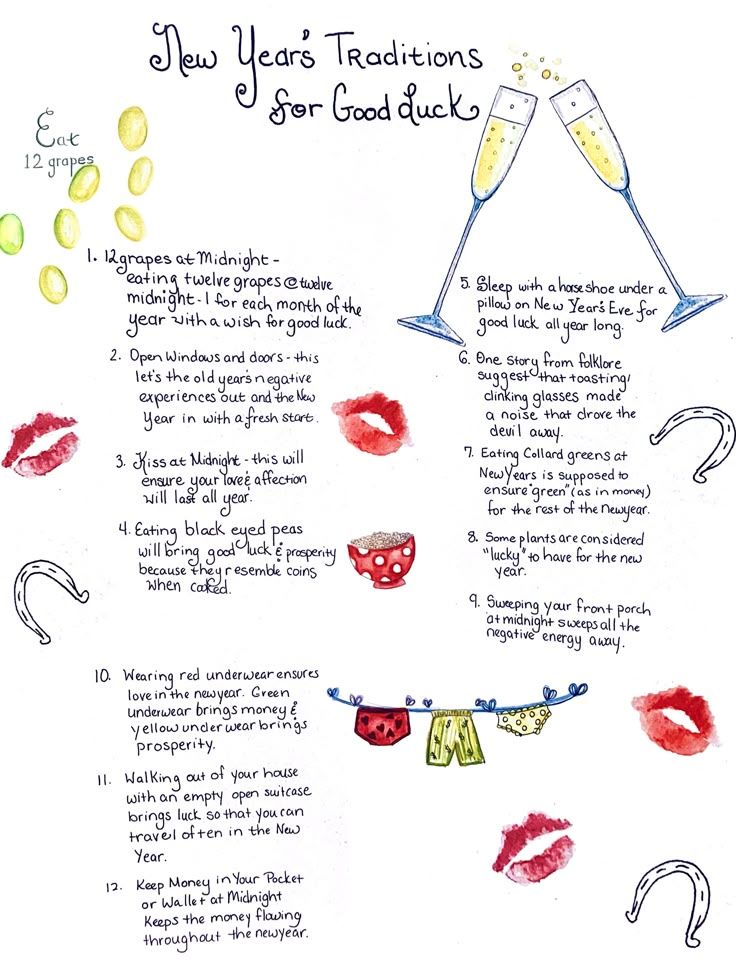 New Year's Traditions
for Good Luck
Eat
12 grapes
1. 12 grapes at Midnight -
eating twelve grapes @ twelve
midnight - 1 for each month of the
year with a wish for good luck.
2. Open Windows and doors - this
let's the old year's negative
experiences out and the New
Year in with a fresh start.
3. Kiss at Midnight - this will
ensure your love & affection
will last all year.
4. Eating black eyed peas
will bring good luck & prosperity
because they resemble coins
when cooked.
5. Sleep with a horseshoe under a
pillow on New Year's Eve for
good luck all year long.
6. One story from folklore
suggest that toasting/
clinking glasses made
a noise that drove the
devil away.
7. Eating Collard greens at
New Years is supposed to
ensure "green" (as in money)
for the rest of the newyear.
8. Some plants are considered
"lucky" to have for the new
year.
9. Sweeping your front porch
at midnight sweeps all the
negative energy away.
10. Wearing red underwear ensures
love in the newyear. Green
underwear brings money &
yellow underwear brings
prosperity.
11. Walking out of your house
with an empty open suitcase
brings luck so that you can
travel often in the New
Year.
12. Keep Money in Your Pocket
or Wallet at Midnight
Keeps the money flowing
throughout the newyear.